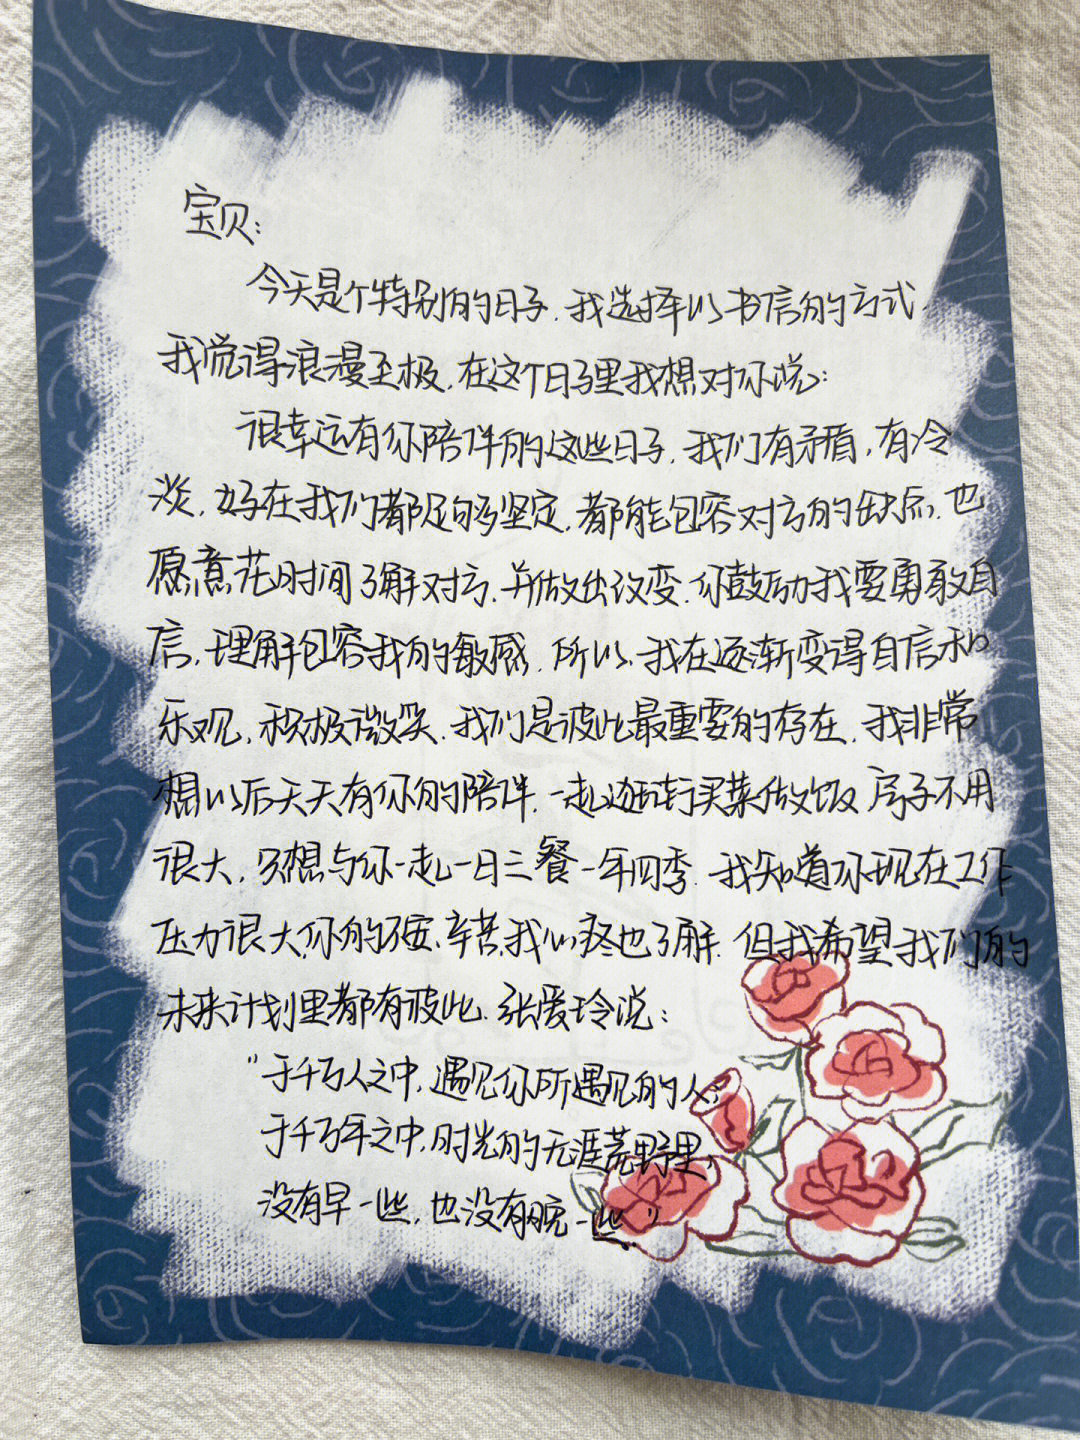 宝贝:
今天是个特别的日子.我选择以书信的方式,
我觉得浪漫至极,在这个日子里我想对你说:
很幸运有你陪伴的这些日子.我们有矛盾,有冷
淡,好在我们都足够坚定,都能包容对方的缺点.也
愿意花时间了解对方.并做出改变.你鼓励我要勇敢自
信,理解包容我的敏感.所以,我在逐渐变得自信和
乐观,积极微笑.我们是彼此最重要的存在.我非常
想以后天天有你的陪伴.一起逛街买菜做饭 房子不用
很大,只想与你一起一日三餐一年四季.我知道你现在工作
压力很大,你的不安、辛苦,我心疼也了解.但我希望我们的
未来计划里都有彼此.张爱玲说:
"于千万人之中,遇见你所遇见的人;
于千万年之中,时光的无涯荒野里,
没有早一些,也没有晚一些."